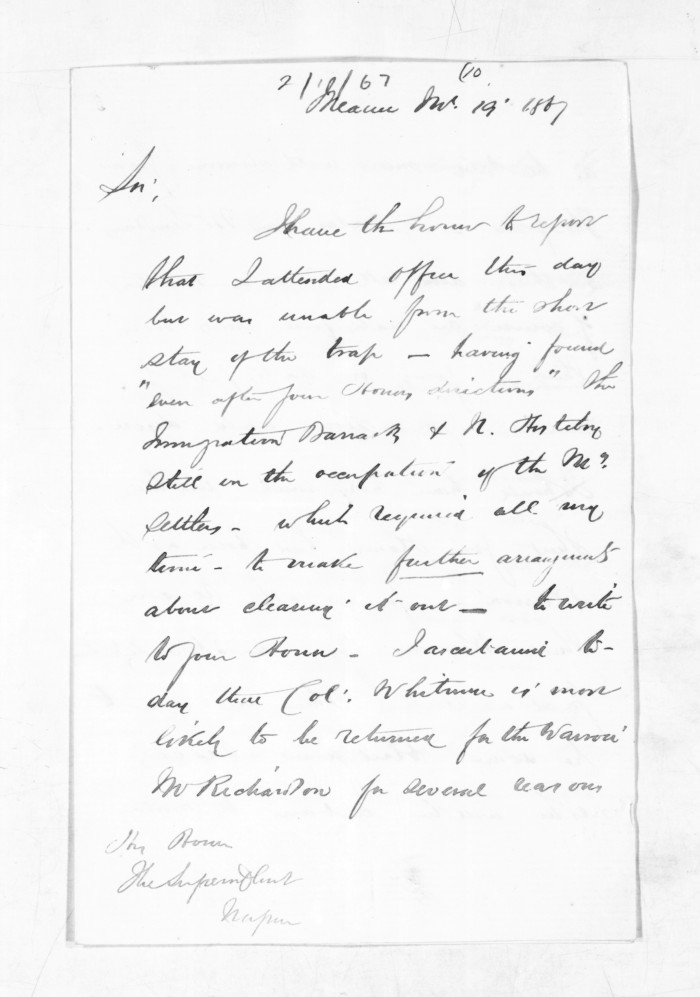 2/1/67 (10
Meanee Nov. 19. 1867
Sir,
I have the honor to report
that I attended office this day
but was unable from the short
stay of the trap – having found
"even after your Honors directions" the
Immigration Barrack & N.
still in the occupation of the My.
settlers – which required all my
time – to make further arrangements
about clearing it out – to write
to your Honor – I ascertained to-
day that Col. Whitmore is most
likely to be returned for the Wairoa
Mr Richardson for several reasons
His Honor
The Superintendent
Napier